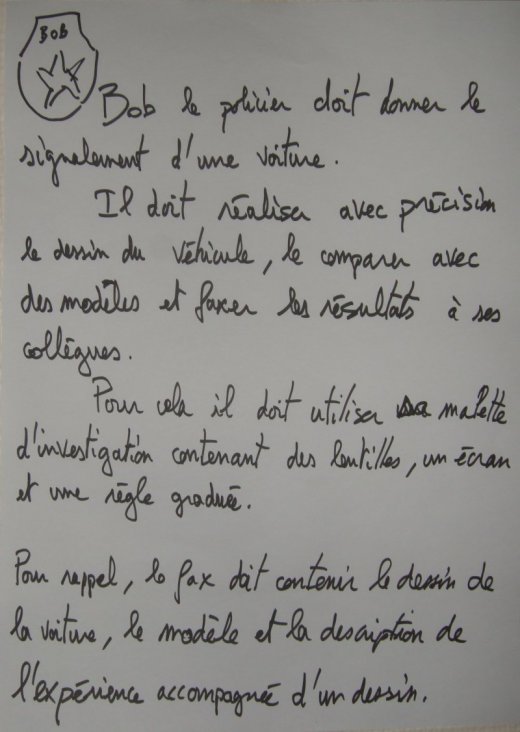 BOB
Bob le policier doit donner le
signalement d'une voiture.
Il doit réaliser avec précision
le dessin du véhicule, le comparer avec
des modèles et faxer les résultats à ses
collègues.
Pour cela il doit utiliser sa malette
d'investigation contenant des lentilles, un écran
et une règle graduée.
Pour rappel, le fax doit contenir le dessin de
la voiture, le modèle et la description de
l'expérience accompagnée d'un dessin.